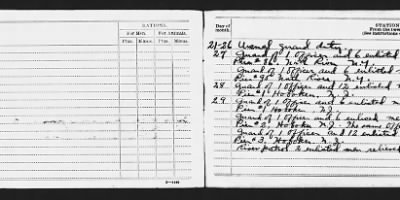 RATIONS.
For Men. For Animals.
Plus. Minus. Plus. Minus.
Day of month.
STATION
From the Date
(See instructions
21-26 Usual guard duty.
27 Guard of 1 Officer and 6 enlisted
Pier # North River N.Y.
Guard of 1 Officer and 6 enlisted
Pier # North River N.Y.
28 Guard of 1 Officer and 12 enlisted
Hoboken, N.J.
29 Guard of 1 Officer and 6 enlisted me
Pier #1 Hoboken N.J.
Guard of 1 Officer and 6 enlisted me
Pier #2, Hoboken N.J. The same Off
Guard of 1 Officer and 12 enlisted
Pier #3, Hoboken, N.J.
River patrol 2 enlisted men relieved